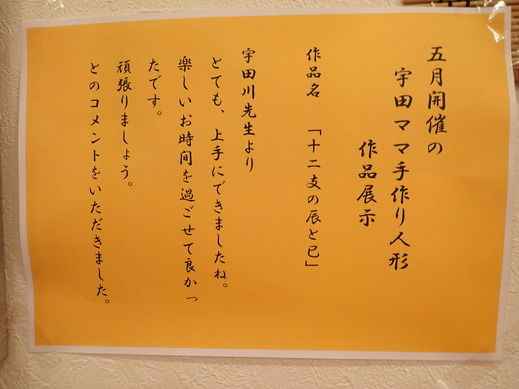 五月開催の
宇田ママ手作り人形
作品展示
作品名 「十二支の辰と巳」
宇田川先生より
とても、上手にできましたね。
楽しいお時間を過ごせて良かっ
たです。
頑張りましょう。
とのコメントをいただきました。